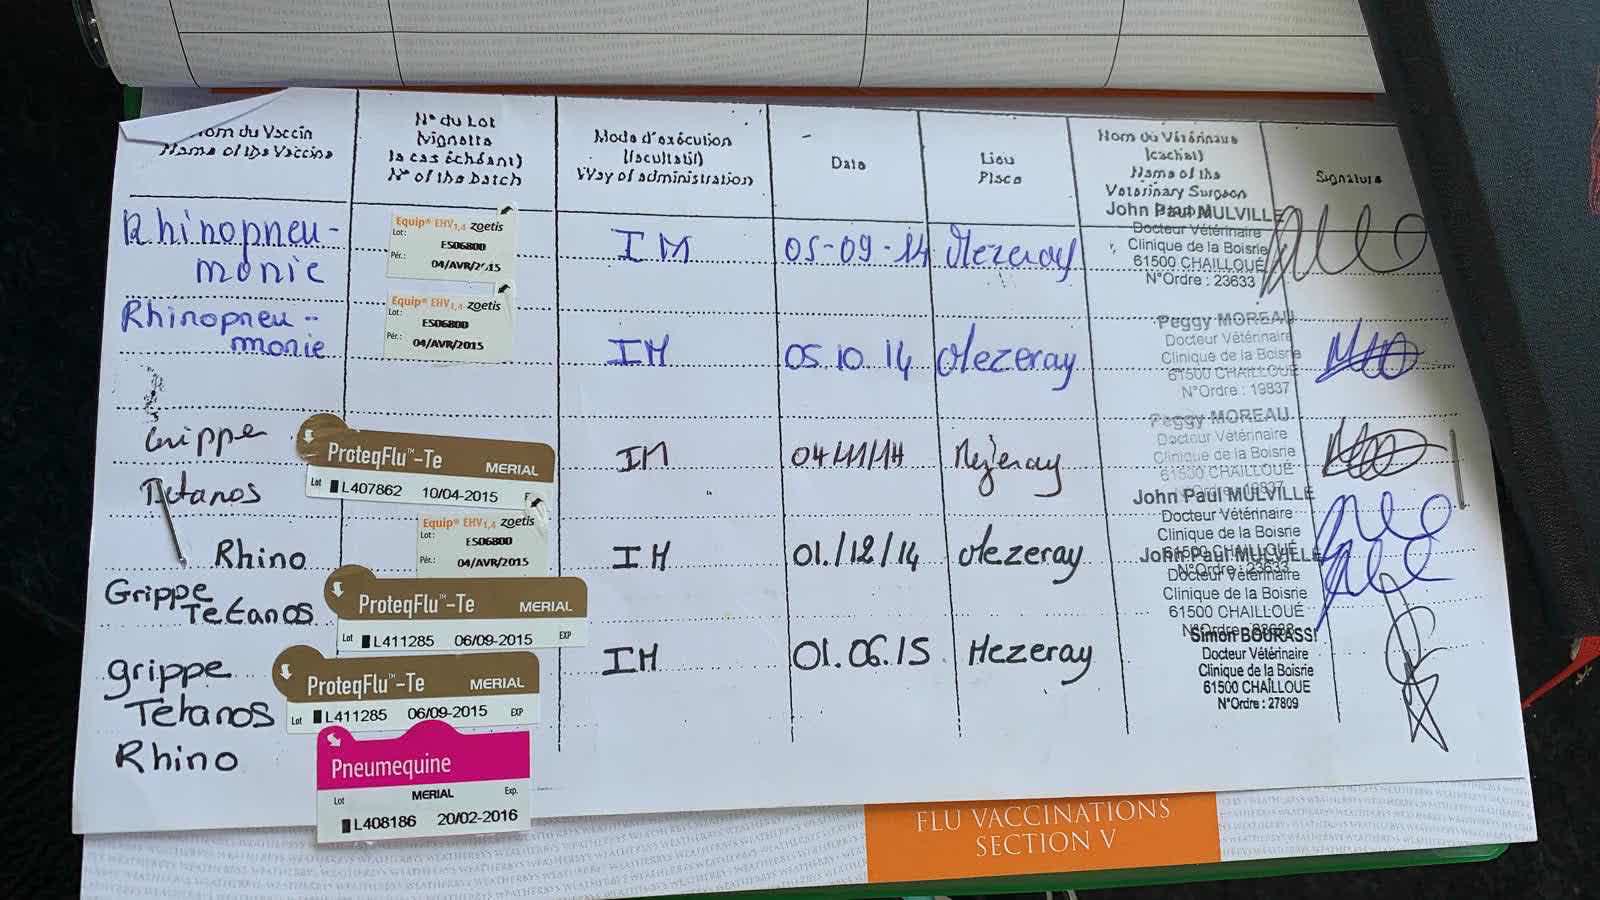 Nom du Vaccin
Name of the Vaccine
N° du Lot
Vignette
(a cas échéant)
N° of the batch
Mode d'exécution
(facultatif)
Way of administration
Date
Lieu
Place
Nom du Vétérinaire
(cachet)
Name of the
Veterinary Surgeon
Signature
Rhinopneu-
monie
Equip® EHV1,4 zoetis
Lot: ES06800
Pér.: 04/AVR/2015
IM
05-09-14
Mezeray
John Paul MULVILLE
Docteur Vétérinaire
Clinique de la Boisrie
61500 CHAILLOUÉ
N°Ordre : 23633
Rhinopneu-
monie
Equip® EHV1,4 zoetis
Lot: ES06800
Pér.: 04/AVR/2015
IM
05.10.14
Mezeray
Peggy MOREAU
Docteur Vétérinaire
Clinique de la Boisrie
61500 CHAILLOUÉ
N°Ordre : 19837
Grippe
Tetanos
ProteqFlu™-Te MERIAL
Lot L407862 10/04-2015
IM
04/11/14
Mézeray
Peggy MOREAU
Docteur Vétérinaire
Clinique de la Boisrie
61500 CHAILLOUÉ
Rhino
Equip® EHV1,4 zoetis
Lot: ES06800
Pér.: 04/AVR/2015
IM
01/12/14
Mezeray
John Paul MULVILLE
Docteur Vétérinaire
Clinique de la Boisrie
61500 CHAILLOUÉ
N°Ordre : 23633
Grippe
Tetanos
ProteqFlu™-Te MERIAL
Lot L411285 06/09-2015 EXP
John Paul MULVILLE
Docteur Vétérinaire
Clinique de la Boisrie
61500 CHAILLOUÉ
grippe
Tetanos
ProteqFlu™-Te MERIAL
Lot L411285 06/09-2015 EXP
IM
01.06.15
Mezeray
Simon BOURASSI
Docteur Vétérinaire
Clinique de la Boisrie
61500 CHAILLOUE
N°Ordre : 27809
Rhino
Pneumequine
MERIAL
Lot Exp.
L408186 20/02-2016
FLU VACCINATIONS
SECTION V